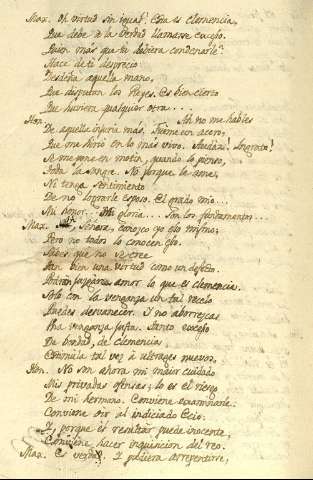 Max. Oh virtud sin igual! Esta es clemencia,
Que debe a la verdad llamarse exceso.
Quien más que tu debiera condenarle?
Hace de ti desprecio
Desdeña aquella mano,
Que disputan los Reyes. Es bien cierto
Que hubiera qualquier otra . . .
Hon. Ah no me hables
De aquella injuria más. Tiene un acero,
Que me hirió en lo mas vivo. Audáz! Ingrato!
Se me pone en motin, quando lo pienso,
Toda la sangre. No porque la ame,
Ni tenga sentimiento
De no lograrle esposo. El grado mio . . .
Mi honor . . . Mi gloria . . . Son los fundamentos . . .
Max. Señora, conozco yo esto mismo;
Pero no todos lo conocen esto.
Sabes que se cree
Tan bien una virtud como un defecto.
Podrán juzgarse amor lo que es clemencia.
Solo con la venganza un tal recelo
Puedes desvanecer. Y no aborrezcas
Una venganza justa. Tanto exceso
De bondad, de clemencias
Estimúla tal vez à ultrages nuevos.
Hon. No son ahora mi maior cuidado
Mis privadas ofensas; lo es el riesgo
De mi hermano. Conviene examinarle.
Conviene oir al indiciado Ecio.
Y, porque el resultar puede inocente,
Conviene hacer inquisicion del reo.
Max. Es verdad, Y pudiera arrepentirse,